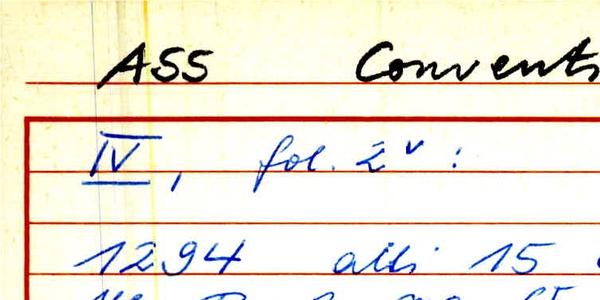 ASS Convents
IV, fol. 2v:
1294 alli 15